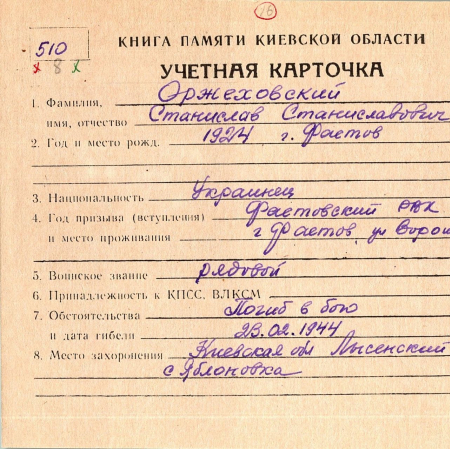 76
510
х 8 х
КНИГА ПАМЯТИ КИЕВСКОЙ ОБЛАСТИ
УЧЕТНАЯ КАРТОЧКА
1. Фамилия, Оржеховский
имя, отчество Станислав Станиславович
2. Год и место рожд. 1924 г. Фастов
3. Национальность Украинец
4. Год призыва (вступления) Фастовский РВК
и место проживания г Фастов ул Ворош
5. Воинское звание рядовой
6. Принадлежность к КПСС. ВЛКСМ
7. Обстоятельства Погиб в бою
и дата гибели 23.02.1944
8. Место захоронения Киевская обл Лысенский
с Яблоновка